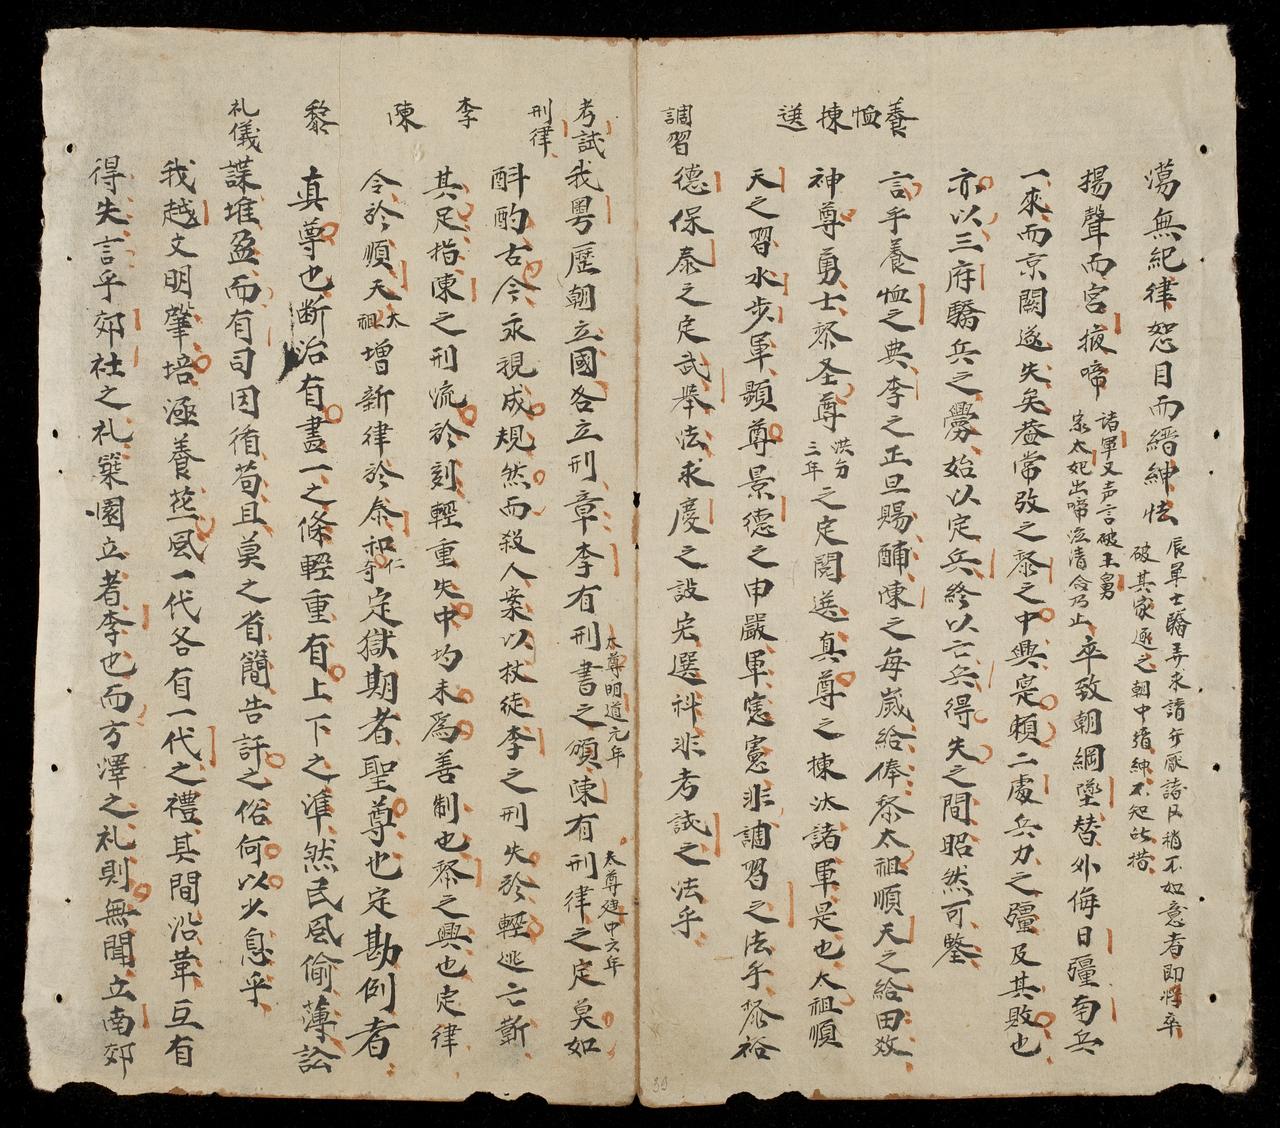 蕩無紀律怒目而縉紳怯
辰軍士驕弄求請
者即將卒
破其家逐之朝中搢紳不知所措
揚聲而宮掖啼
諸軍又声言破王舅
家太妃出啼泣請命乃止
卒致朝綱墜替外侮日彊南兵
一來而京闕遂失矣蓋常攷之黎之中興寔賴二處兵力之彊及其敗也
亦以三府驕兵之釁始以定兵終以亡兵得失之間昭然可鑒
養恤
言乎養恤之典李之正旦賜酺陳之每歲給俸黎太祖順天之給田攷
揀
選
神尊勇士黎圣尊
洪
三年
之定閱選真尊之揀汰諸軍是也太祖順
天之習水步軍顯尊景德之申嚴軍憲憲非調習之法乎黎裕
調習
德保泰之定武舉法求慶之設宏選科非考試之法乎
考試
我粤歷朝立國各立刑章李有刑書之頒
太尊明道元年
陳有刑律之定
太尊建中六年
莫如
刑律
酙酌古今永視成規然而殺人案以杖徒李之刑失於輕逃亡斷
李
其足指陳之刑流於刻輕重失中均未爲善制也黎之興也定律
陳
令於順天
太
祖
增新律於泰和
仁
定獄期者聖尊也定勘例者
黎
真尊也断治有畫一之條輕重有上下之準然民風偷薄訟
礼儀
諜堆盈而有司因循苟且莫之省簡告訐之俗何以少息乎
我越文明肇培涵養
風一代各有一代之禮其間沿革互有
得失言乎郊社之礼築圜立者李也而方澤之礼則無聞立南郊
39